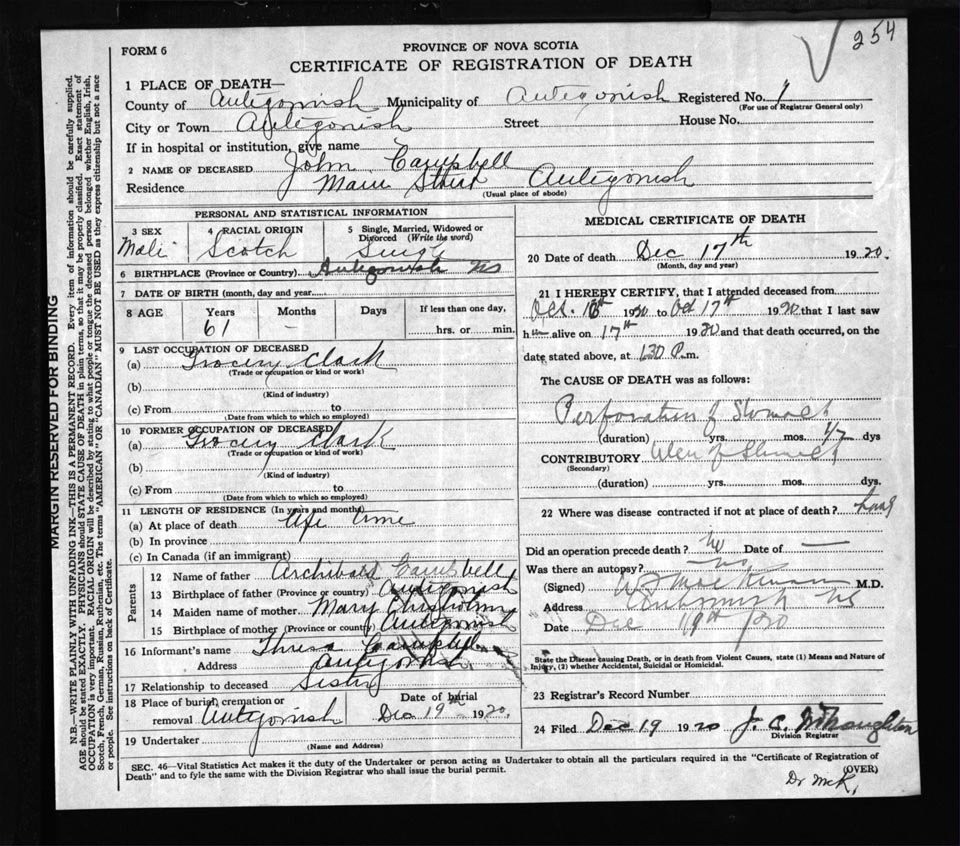 254
FORM 6
PROVINCE OF NOVA SCOTIA
CERTIFICATE OF REGISTRATION OF DEATH
1 PLACE OF DEATH—
County of Antigonish Municipality of Antigonish Registered No. 1
(For use of Registrar General only)
City or Town Antigonish Street House No.
If in hospital or institution, give name
2 NAME OF DECEASED John Campbell
Residence Main Street Antigonish
(Usual place of abode)
PERSONAL AND STATISTICAL INFORMATION
3 SEX 4 RACIAL ORIGIN 5 Single, Married, Widowed or Divorced (Write the word)
Male Scotch Single
6 BIRTHPLACE (Province or Country) Antigonish NS
7 DATE OF BIRTH (month, day and year)
8 AGE Years Months Days If less than one day,
61 – hrs. or min.
9 LAST OCCUPATION OF DECEASED
(a) Grocery Clark
(Trade or occupation or kind or work)
(b)
(Kind of industry)
(c) From to
(Date from which to which so employed)
10 FORMER OCCUPATION OF DECEASED
(a) Grocery Clark
(Trade or occupation or kind or work)
(b)
(Kind of industry)
(c) From to
(Date from which to which so employed)
11 LENGTH OF RESIDENCE (In years and months)
(a) At place of death Life time
(b) In province
(c) In Canada (if an immigrant)
Parents
12 Name of father Archibald Campbell
13 Birthplace of father (Province or country) Antigonish
14 Maiden name of mother Mary Chisholm
15 Birthplace of mother (Province or country) Antigonish
16 Informant's name Thresa Campbell
Address Antigonish
17 Relationship to deceased Sister
18 Place of burial, cremation or removal Antigonish Date of burial Dec 19th 1920.
19 Undertaker
(Name and Address)
MEDICAL CERTIFICATE OF DEATH
20 Date of death Dec 17th 1920.
(Month, day and year)
21 I HEREBY CERTIFY, that I attended deceased from
1920 to 17th 1920 that I last saw
h alive on 17th 1920 and that death occurred, on the
date stated above, at 1.30 P.m.
The CAUSE OF DEATH was as follows:
Perforation of Stomach
(duration) yrs. mos. 1/2 dys
CONTRIBUTORY Ulcer of Stomach
(Secondary)
(duration) yrs. mos. dys.
22 Where was disease contracted if not at place of death?
Did an operation precede death? No Date of —
Was there an autopsy? No
(Signed) W F MacKinnon M.D.
Address Antigonish NS
Date Dec 19th 1920
State the Disease causing Death, or in death from Violent Causes, state (1) Means and Nature of
Injury, (2) whether Accidental, Suicidal or Homicidal.
23 Registrar's Record Number
24 Filed Dec 19 1920 J. C. McNaughton
Division Registrar
SEC. 46—Vital Statistics Act makes it the duty of the Undertaker or person acting as Undertaker to obtain all the particulars required in the "Certificate of Registration of
Death" and to fyle the same with the Division Registrar who shall issue the burial permit.
(OVER)
Dr McK.
MARGIN RESERVED FOR BINDING
N.B.—WRITE PLAINLY, WITH UNFADING INK—THIS IS A PERMANENT RECORD. Every item of information should be carefully supplied.
AGE should be stated EXACTLY. PHYSICIANS should STATE CAUSE OF DEATH in plain terms, so that it may be properly classified. Exact statement of
OCCUPATION is very important. RACIAL ORIGIN will be described by stating to what people or tongue the deceased person belonged whether English, Irish,
Scotch, French, German, Russian, Ruthenian, etc. The terms "AMERICAN" OR "CANADIAN" MUST NOT BE USED as they express citizenship but not a race
or people. See instructions on back of Certificate.